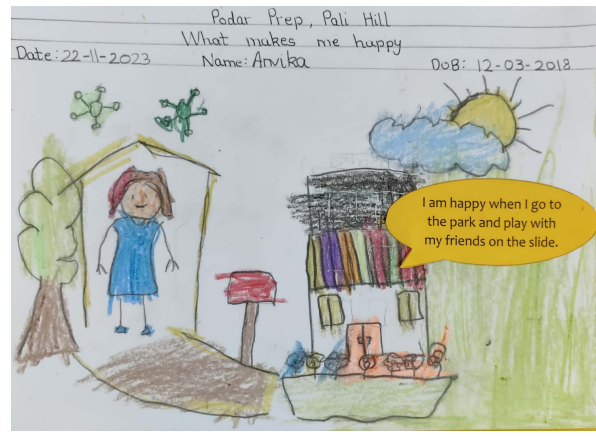 Podar Prep, Pali Hill
What makes me happy
Date: 22-11-2023 Name: Anvika DOB: 12-03-2018
I am happy when I go to
the park and play with
my friends on the slide.